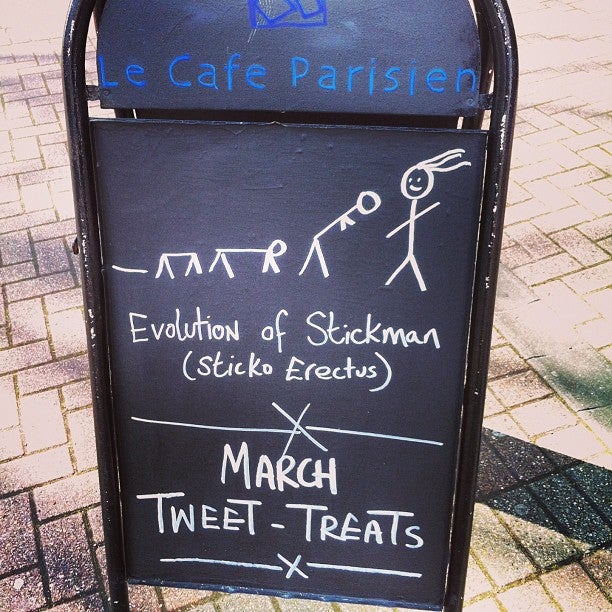 Le Cafe Parisien
Evolution of Stickman
(Sticko Erectus)
MARCH
TWEET-TREATS